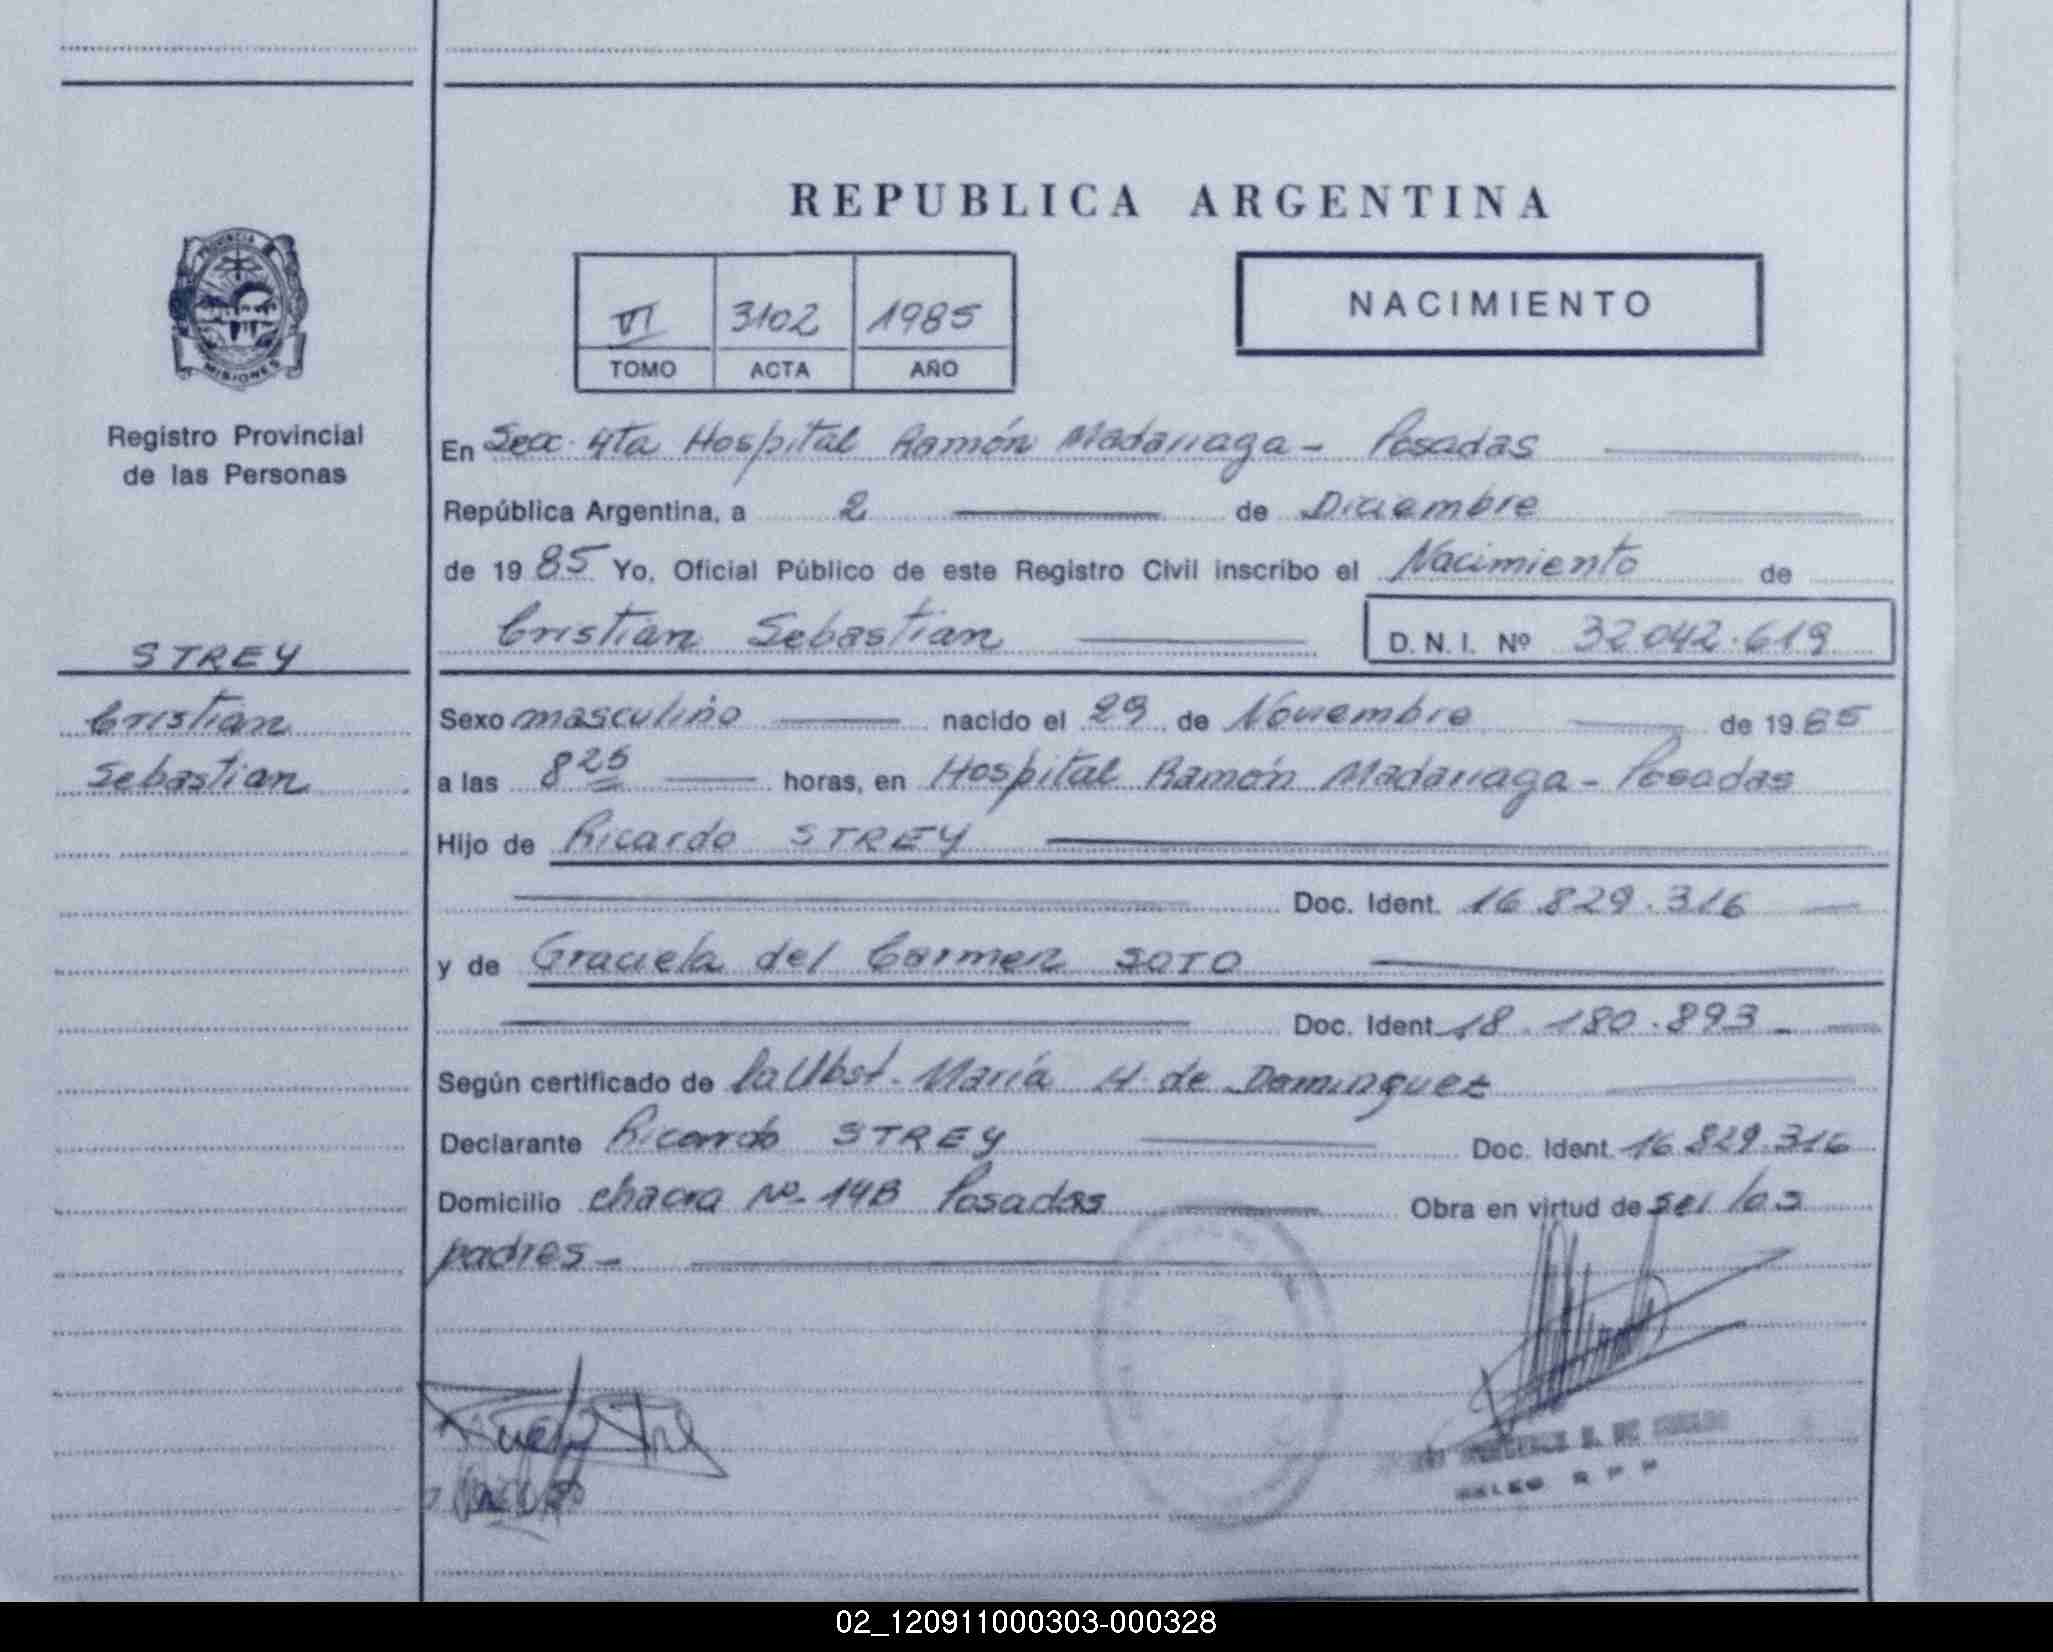 REPUBLICA ARGENTINA
PROVINCIA
MISIONES
Registro Provincial
de las Personas
VI 3102 1985
TOMO ACTA AÑO
NACIMIENTO
En Secc. 4ta Hospital Ramón Madariaga - Posadas
República Argentina, a 2 de Diciembre
de 1985 Yo, Oficial Público de este Registro Civil inscribo el Nacimiento de
Cristian Sebastian D.N.I. Nº 32.042.619
STREY
Cristian
Sebastian
Sexo masculino nacido el 29 de Noviembre de 1985
a las 8 25 horas, en Hospital Ramón Madariaga - Posadas
Hijo de Ricardo STREY
Doc. Ident. 16.829.316
y de Graciela del Carmen SOTO
Doc. Ident. 18.180.893
Según certificado de la Obst. María H. de Dominguez
Declarante Ricardo STREY Doc. Ident. 16.829.316
Domicilio chacra Nº 14B Posadas Obra en virtud de ser los
padres -
R P P
02_120911000303-000328